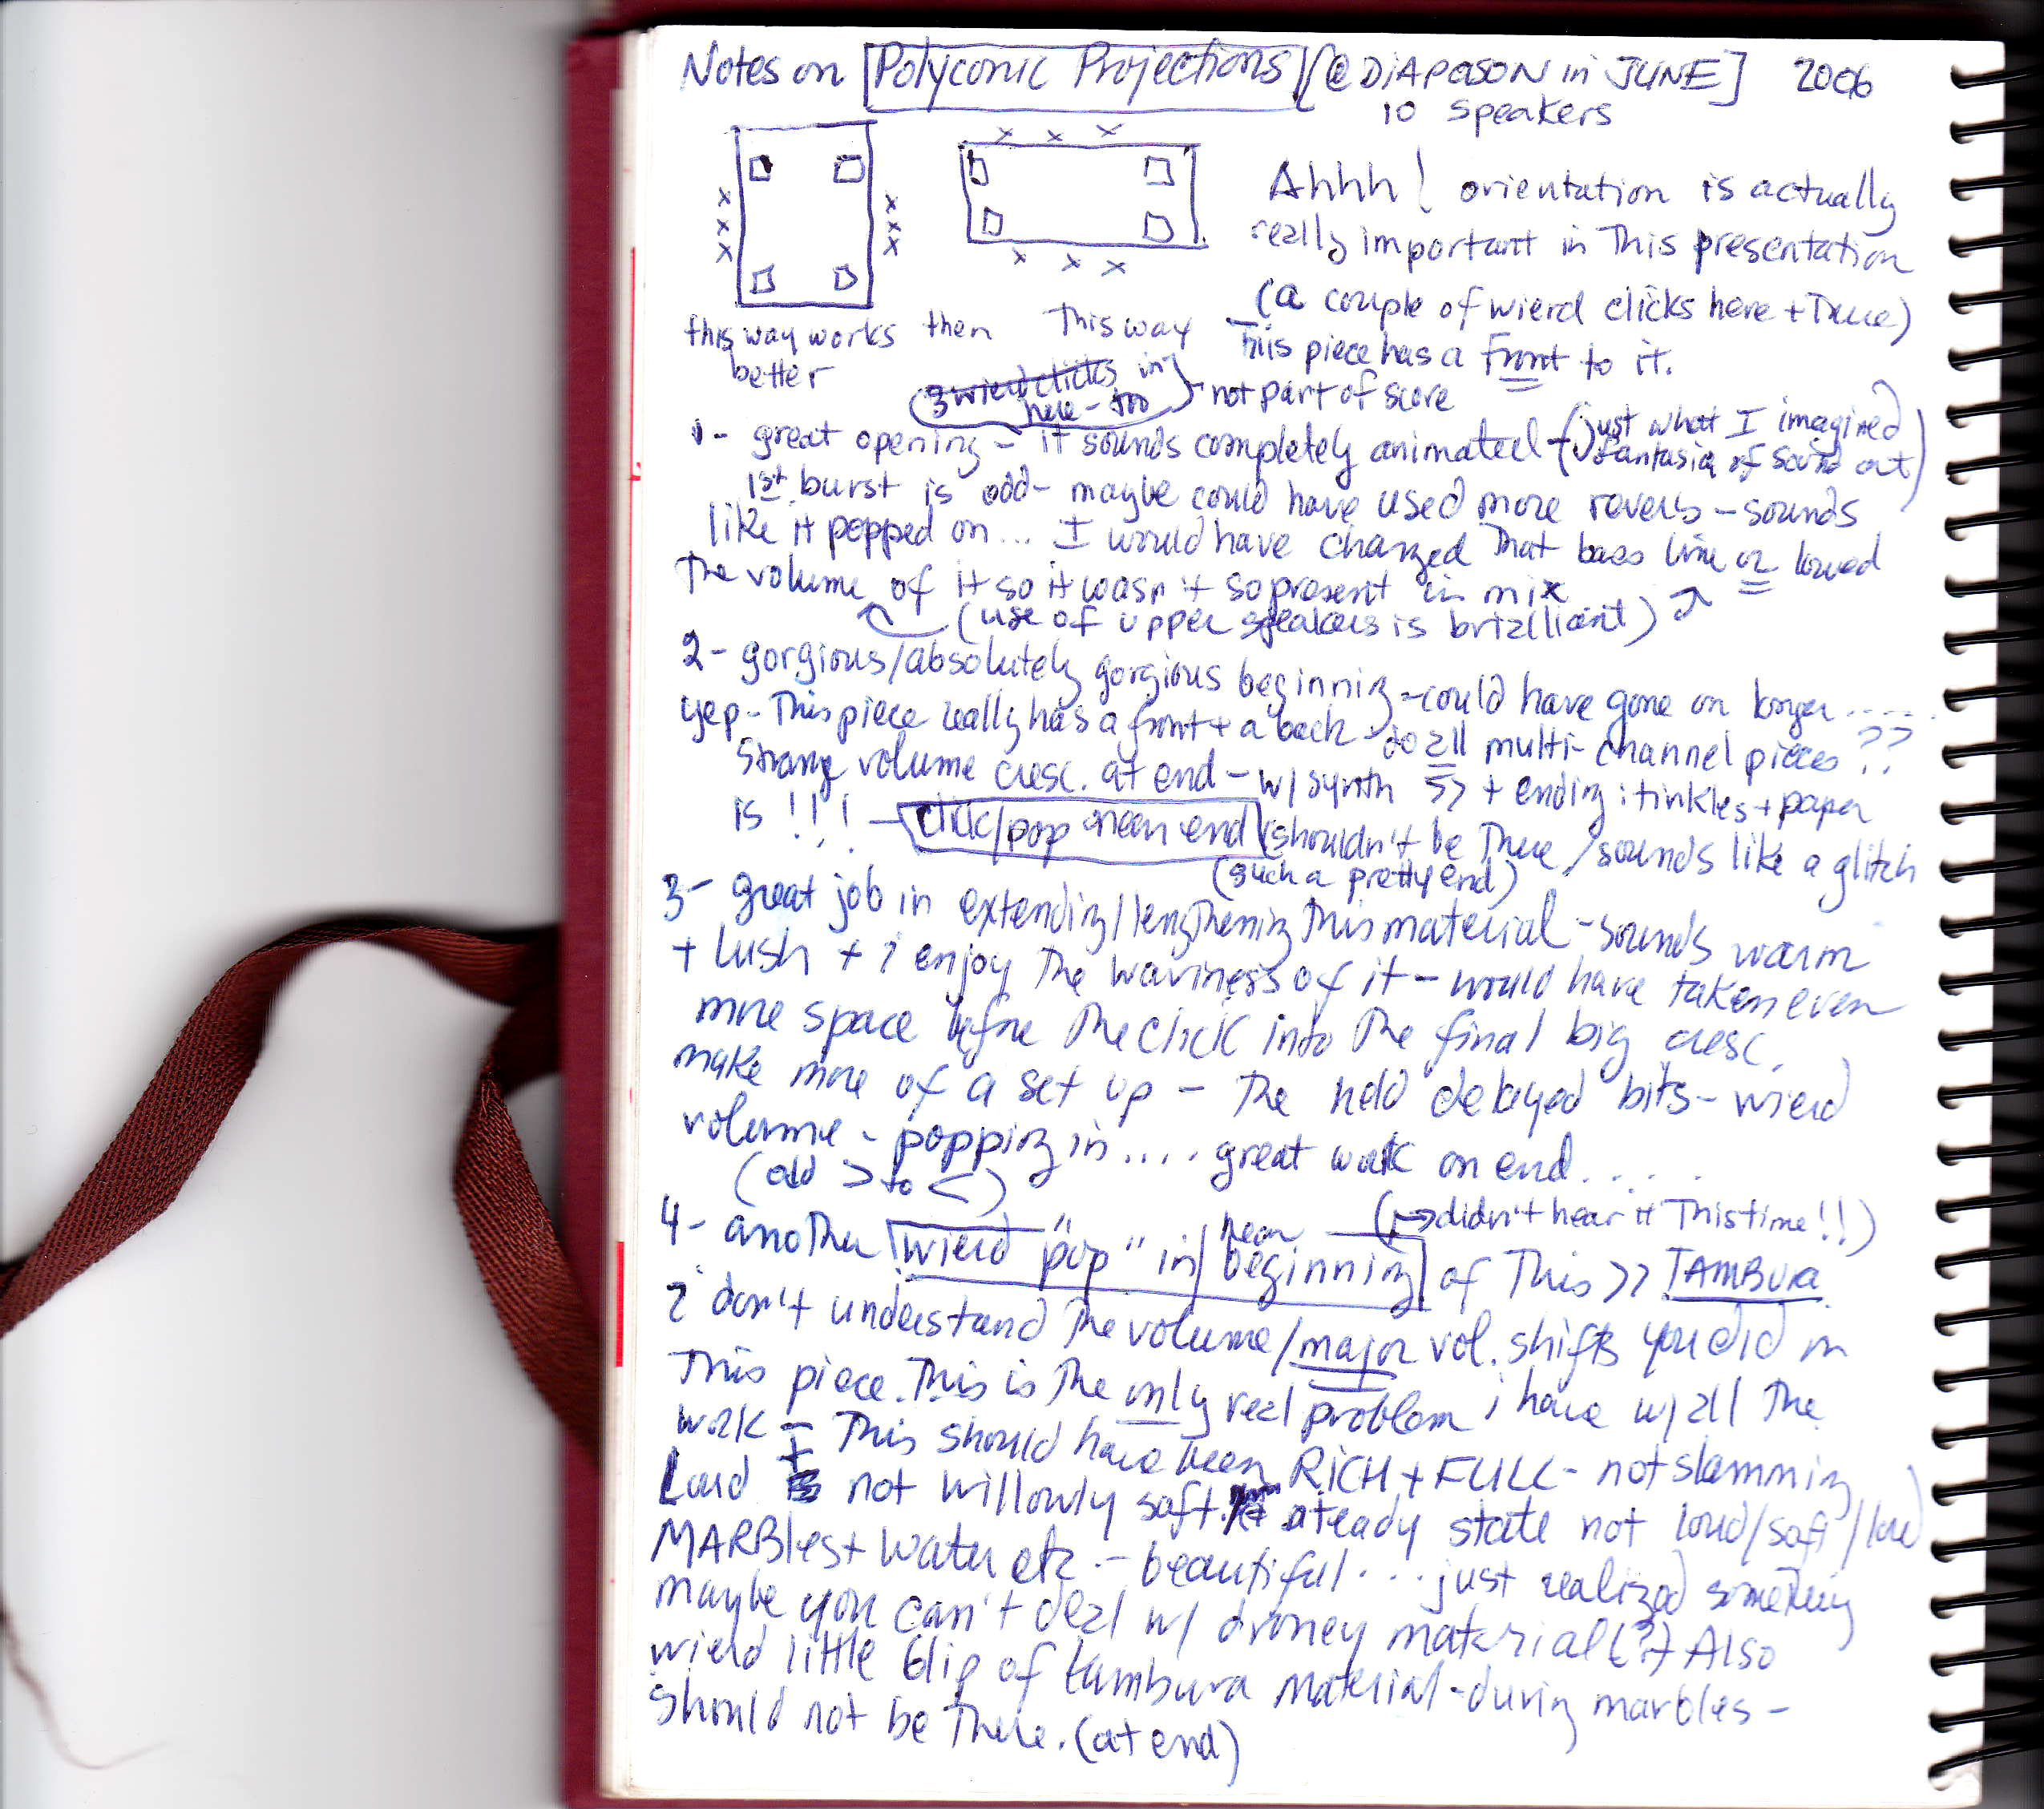 Notes on [Polyconic Projections] [@ DiAPASON in JUNE] 2006
10 speakers
x x x
x x x
x x x
x x x
Ahhh! orientation is actually
really important in This presentation
(a couple of wierd clicks here + There)
this way works then This way
better
This piece has a front to it.
(3 wierd clicks in
here - too) - not part of score
1- great opening - it sounds completely animated - (Just what I imagined
fantasia of sound art)
1st burst is odd - maybe could have used more reverb - sounds
like it popped on... I would have changed That bass line or lowed
The volume of it so it wasn't so present in mix
(use of upper speakers is brizlliant)
2- gorgious/absolutely gorgious beginning - could have gone on longer.....
yep - This piece really has a front + a back - do all multi-channel pieces??
Strang volume cresc. at end - w/ synth >> + ending : tinkles + paper
is !!! - click/pop near end (shouldn't be There / sounds like a glitch
(such a pretty end)
3- great job in extending/lengthening This material - sounds warm
+ lush + i enjoy The waviness of it - would have taken even
more space before The click into The final big cresc.
make more of a set up - The held delayed bits - wierd
volume - popping in.... great work on end.....
(odd > to <)
4- another wierd "pop" in/near beginning of This >> TAMBURA
(↦ didn't hear it This time!!)
i don't understand The volume/major vol. shifts you did in
This piece. This is The only real problem i have w/ all The
work - This should have been RiCH + FULL - not slamming
Loud + not willowly soft. steady state not loud/soft/loud
MARBles + water etc - beautiful... just realized something
maybe you can't deal w/ droney material (?) Also
wierd little blip of tambura material - during marbles -
should not be There. (at end)